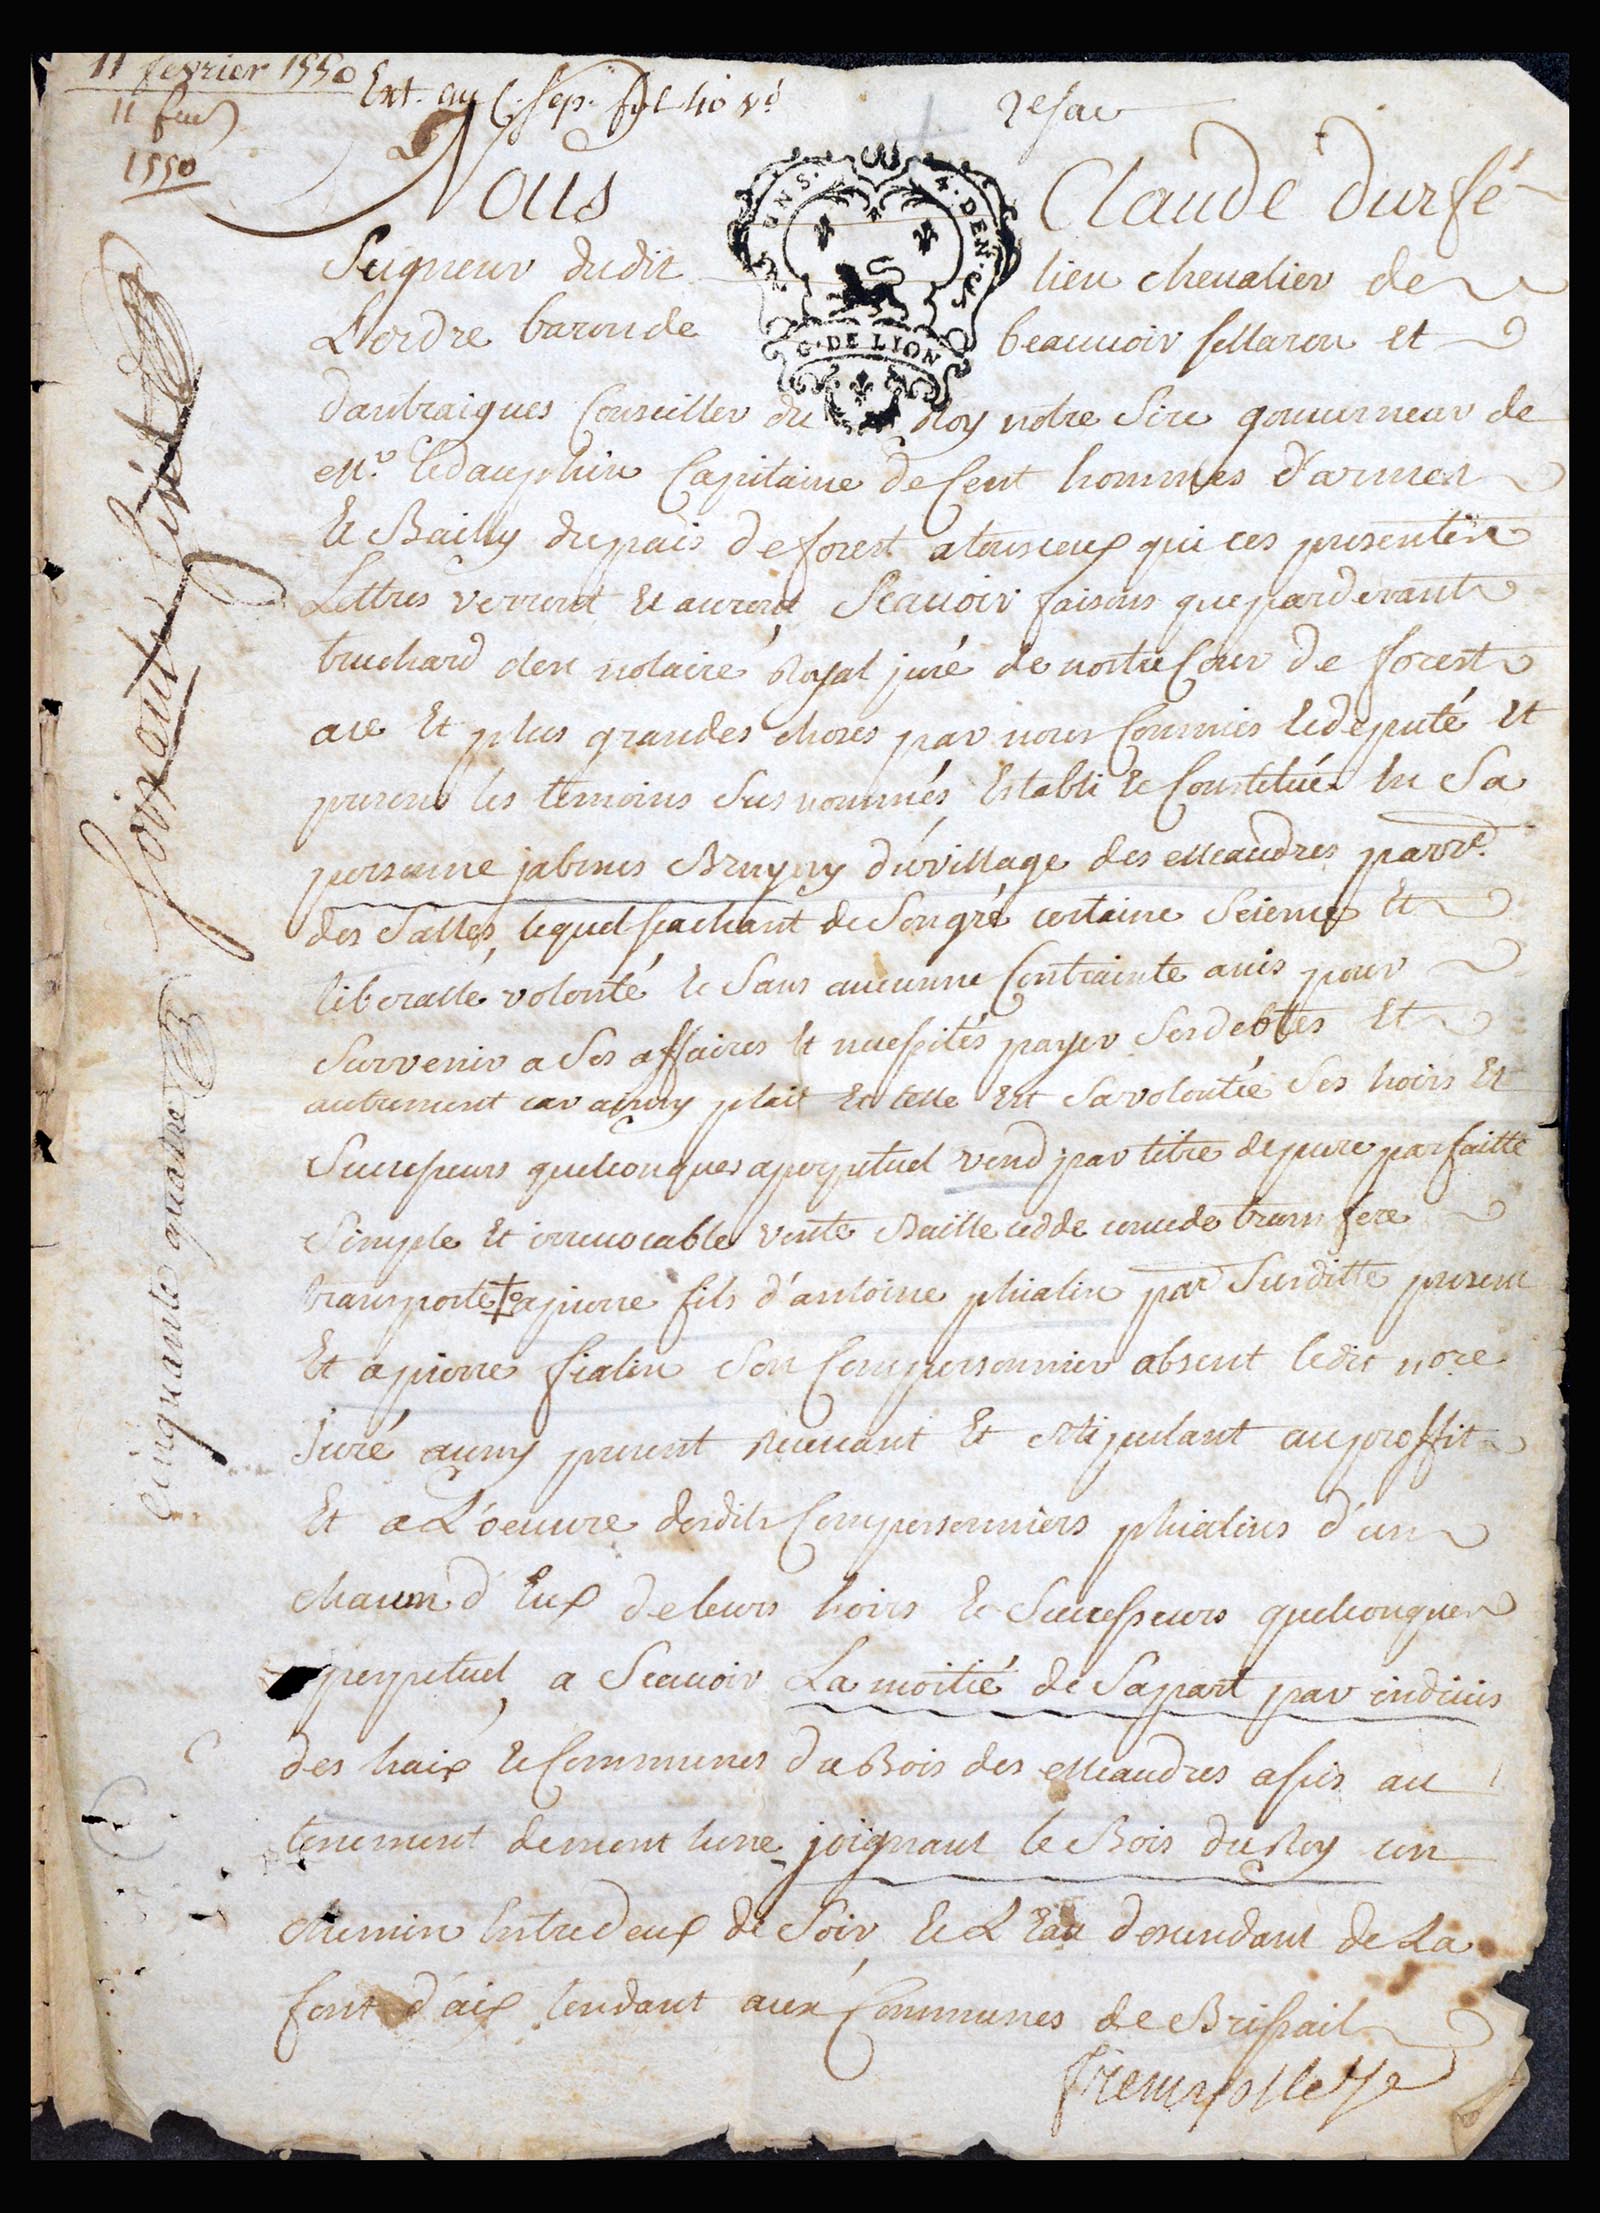 11 fevrier 1550
11 feu
1550
Ext. au sep. fol 40 v.
2e sac
Nous Claude Durfé
Seigneur dudit lieu chevalier de
L'ordre baron de beauuoir et
dantraigues Conseiller du Roy notre Sire gouuerneur de
Mr. le dauphin Capitaine de Cent hommes d'armes
Et Bailly du païs de forest a tous ceux qui ces presentes
Lettres verront et auront Scauoir faisons que pardevant
truchard den notaire Royal juré de nostre Cour de forest
a ce Et plus grandes choses par nous Commis et député Et
presens les temoins Sus nommés, Establi et Constitué En Sa
personne Bruyery du village des Meaudres parr.
des Salles, lequel sachant de Son gré certaine Science Et
liberalle volonté et Sans aucunne Contrainte ains pour
Survenir a Ses affaires Et necessités payer Ses debtes Et
autrement car ainsy plait Et telle Est Sa volontée Ses hoirs Et
Successeurs quelconques a perpetuel vend par titre de pure parfaitte
Simple Et irreuocable vente Baille cedde concede transfere
transporte a pierre fils d'antoine phialin par Susditte present
Et a pierre fialin Son Compersonnier absent ledit nore
juré ausy present Receuant Et Stipulant au proffit
Et a L'oeuure desdits Compersonniers phialins d'un
chacun d'Eux de leurs hoirs et Successeurs quelconques
perpetuel, a Scauoir La moitié de Sa part par indiuis
des haix et Communes du Bois des Meaudres assis au
tenement de mont lune, joignant le Bois du Roy un
chemin Entre deux de Soir, et L'Eau descendant de La
font d'aix tendant aux Communes de Brissail
GEN. DE LION
cinquante quatre